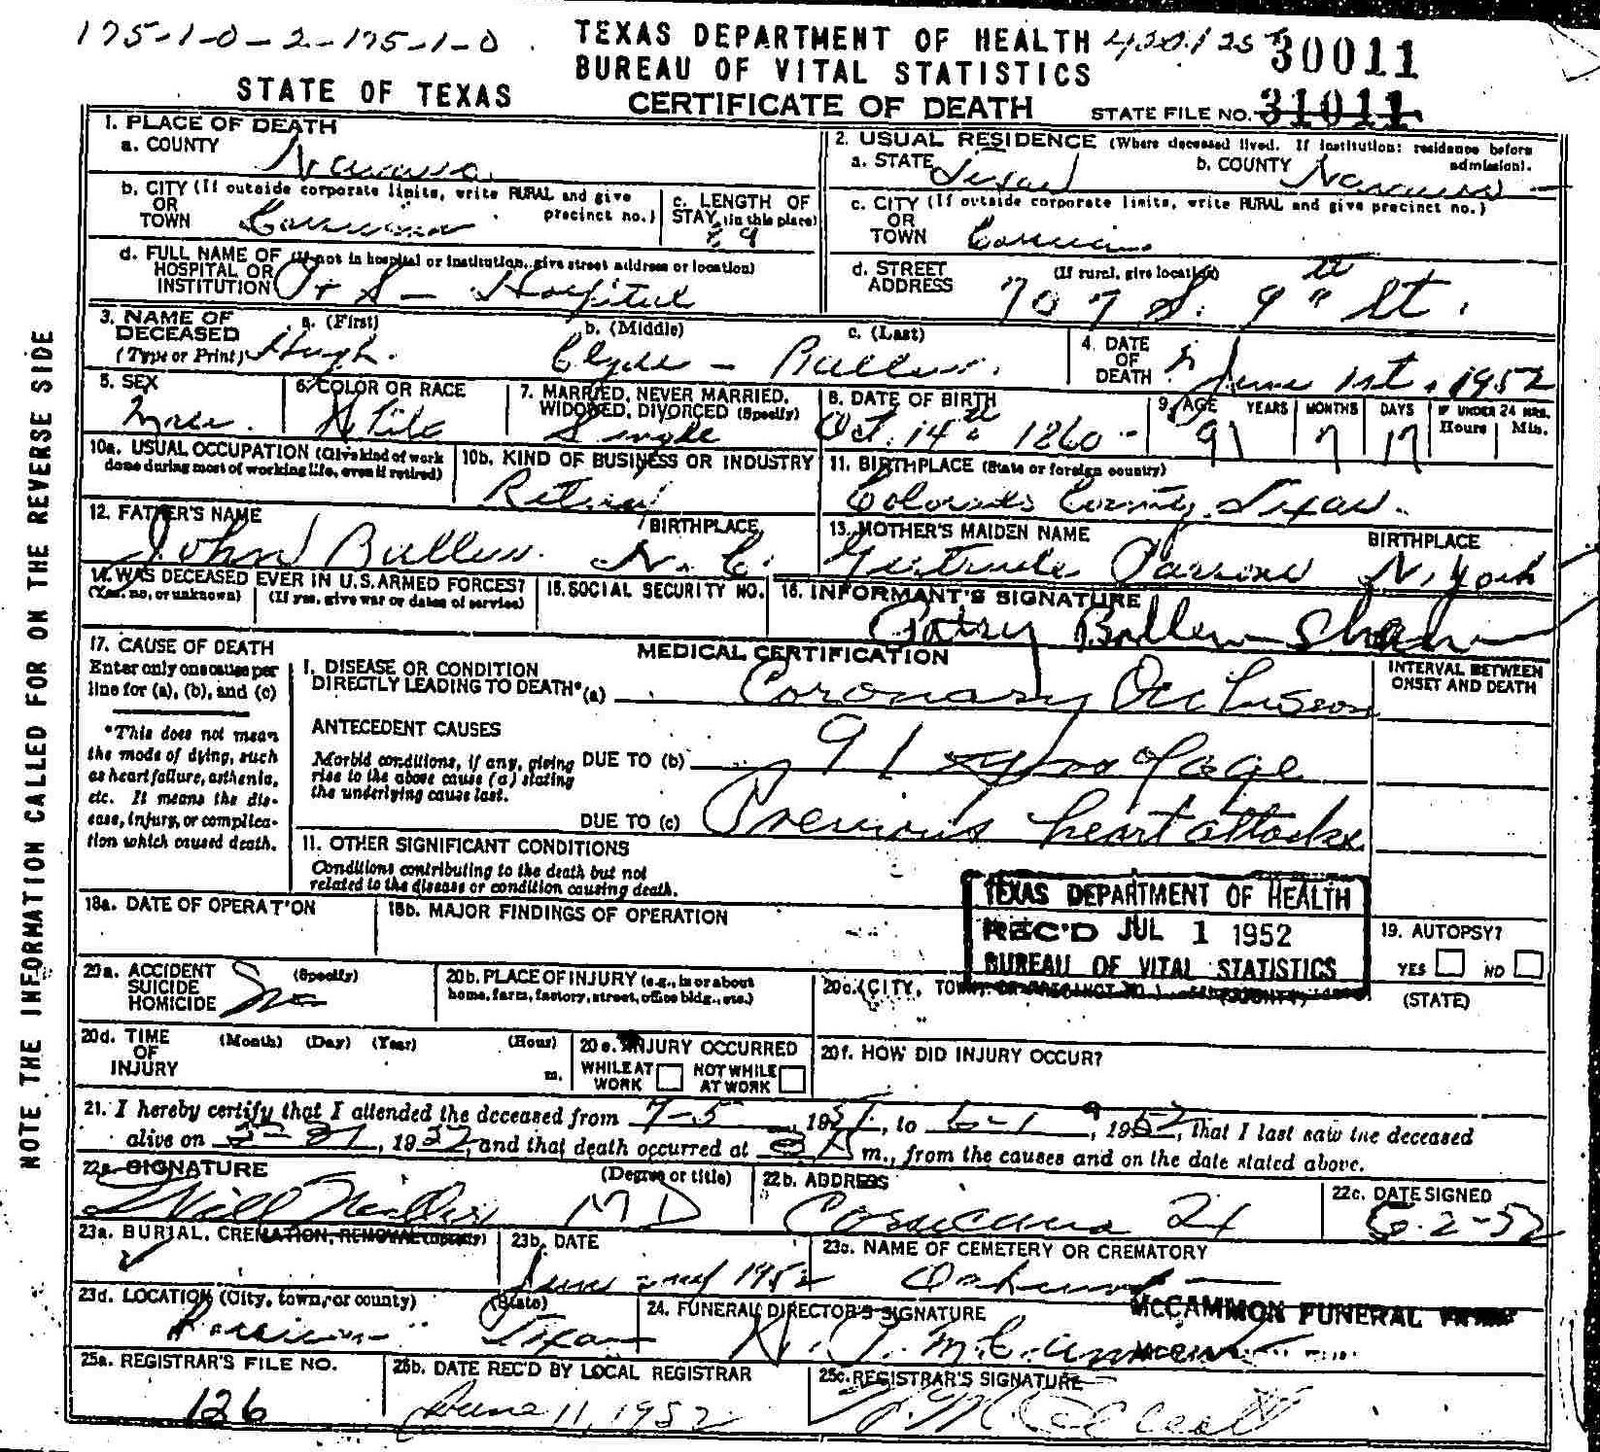 175-1-0-2-175-1-0
TEXAS DEPARTMENT OF HEALTH
30011
BUREAU OF VITAL STATISTICS
STATE OF TEXAS
CERTIFICATE OF DEATH
STATE FILE NO. 31011
1. PLACE OF DEATH
a. COUNTY Navarro
2. USUAL RESIDENCE (Where deceased lived. If institution: residence before admission).
a. STATE Texas b. COUNTY Navarro
b. CITY (If outside corporate limits, write RURAL and give precinct no.)
OR TOWN Corsicana
c. LENGTH OF STAY (in this place)
c. CITY (If outside corporate limits, write RURAL and give precinct no.)
OR TOWN Corsicana
d. FULL NAME OF HOSPITAL OR INSTITUTION (If not in hospital or institution, give street address or location)
P + S - Hospital
d. STREET ADDRESS (If rural, give location)
707 S. 9th St.
3. NAME OF DECEASED (Type or Print)
a. (First) Hugh b. (Middle) Clyde c. (Last)
4. DATE OF DEATH June 1st, 1952
5. SEX Male
6. COLOR OR RACE White
7. MARRIED, NEVER MARRIED, WIDOWED, DIVORCED (Specify) Single
8. DATE OF BIRTH Oct. 14th 1860
9. AGE YEARS 91 MONTHS 7 DAYS 17 IF UNDER 24 HRS. Hours Min.
10a. USUAL OCCUPATION (Give kind of work done during most of working life, even if retired)
10b. KIND OF BUSINESS OR INDUSTRY Retired
11. BIRTHPLACE (State or foreign country) Colorado County, Texas.
12. FATHER'S NAME John Bullen BIRTHPLACE N. C.
13. MOTHER'S MAIDEN NAME Gertrude Parsons BIRTHPLACE N. York
14. WAS DECEASED EVER IN U.S. ARMED FORCES?
(Yes, no, or unknown) (If yes, give war or dates of service)
15. SOCIAL SECURITY NO.
16. INFORMANT'S SIGNATURE
Patsy Bullen Shaw
17. CAUSE OF DEATH
Enter only one cause per line for (a), (b), and (c)
*This does not mean the mode of dying, such as heart failure, asthenia, etc. It means the disease, injury, or complication which caused death.
MEDICAL CERTIFICATION
INTERVAL BETWEEN ONSET AND DEATH
I. DISEASE OR CONDITION DIRECTLY LEADING TO DEATH* (a) Coronary Occlusion
ANTECEDENT CAUSES
Morbid conditions, if any, giving rise to the above cause (a) stating the underlying cause last.
DUE TO (b) 91 yrs of age
DUE TO (c) Previous heart attacks
11. OTHER SIGNIFICANT CONDITIONS
Conditions contributing to the death but not related to the disease or condition causing death.
TEXAS DEPARTMENT OF HEALTH
REC'D JUL 1 1952
BUREAU OF VITAL STATISTICS
18a. DATE OF OPERATION
18b. MAJOR FINDINGS OF OPERATION
19. AUTOPSY?
YES NO
20a. ACCIDENT SUICIDE HOMICIDE (Specify)
20b. PLACE OF INJURY (e.g., in or about home, farm, factory, street, office bldg., etc.)
20c. (CITY, TOWN, OR PRECINCT NO.) (COUNTY) (STATE)
20d. TIME OF INJURY (Month) (Day) (Year) (Hour) m.
20e. INJURY OCCURRED
WHILE AT WORK NOT WHILE AT WORK
20f. HOW DID INJURY OCCUR?
21. I hereby certify that I attended the deceased from 7-5, 1951, to 6-1, 1952, that I last saw the deceased
alive on 5-31, 1952, and that death occurred at 8 A m., from the causes and on the date stated above.
22a. SIGNATURE (Degree or title)
Will Miller MD
22b. ADDRESS
Corsicana
22c. DATE SIGNED
6-2-52
23a. BURIAL, CREMATION, REMOVAL (Specify)
23b. DATE
June 2nd 1952
23c. NAME OF CEMETERY OR CREMATORY
Oakwood
23d. LOCATION (City, town, or county) (State)
Corsicana Texas
24. FUNERAL DIRECTOR'S SIGNATURE
McCAMMON FUNERAL
25a. REGISTRAR'S FILE NO.
126
25b. DATE REC'D BY LOCAL REGISTRAR
June 11, 1952
25c. REGISTRAR'S SIGNATURE
NOTE THE INFORMATION CALLED FOR ON THE REVERSE SIDE